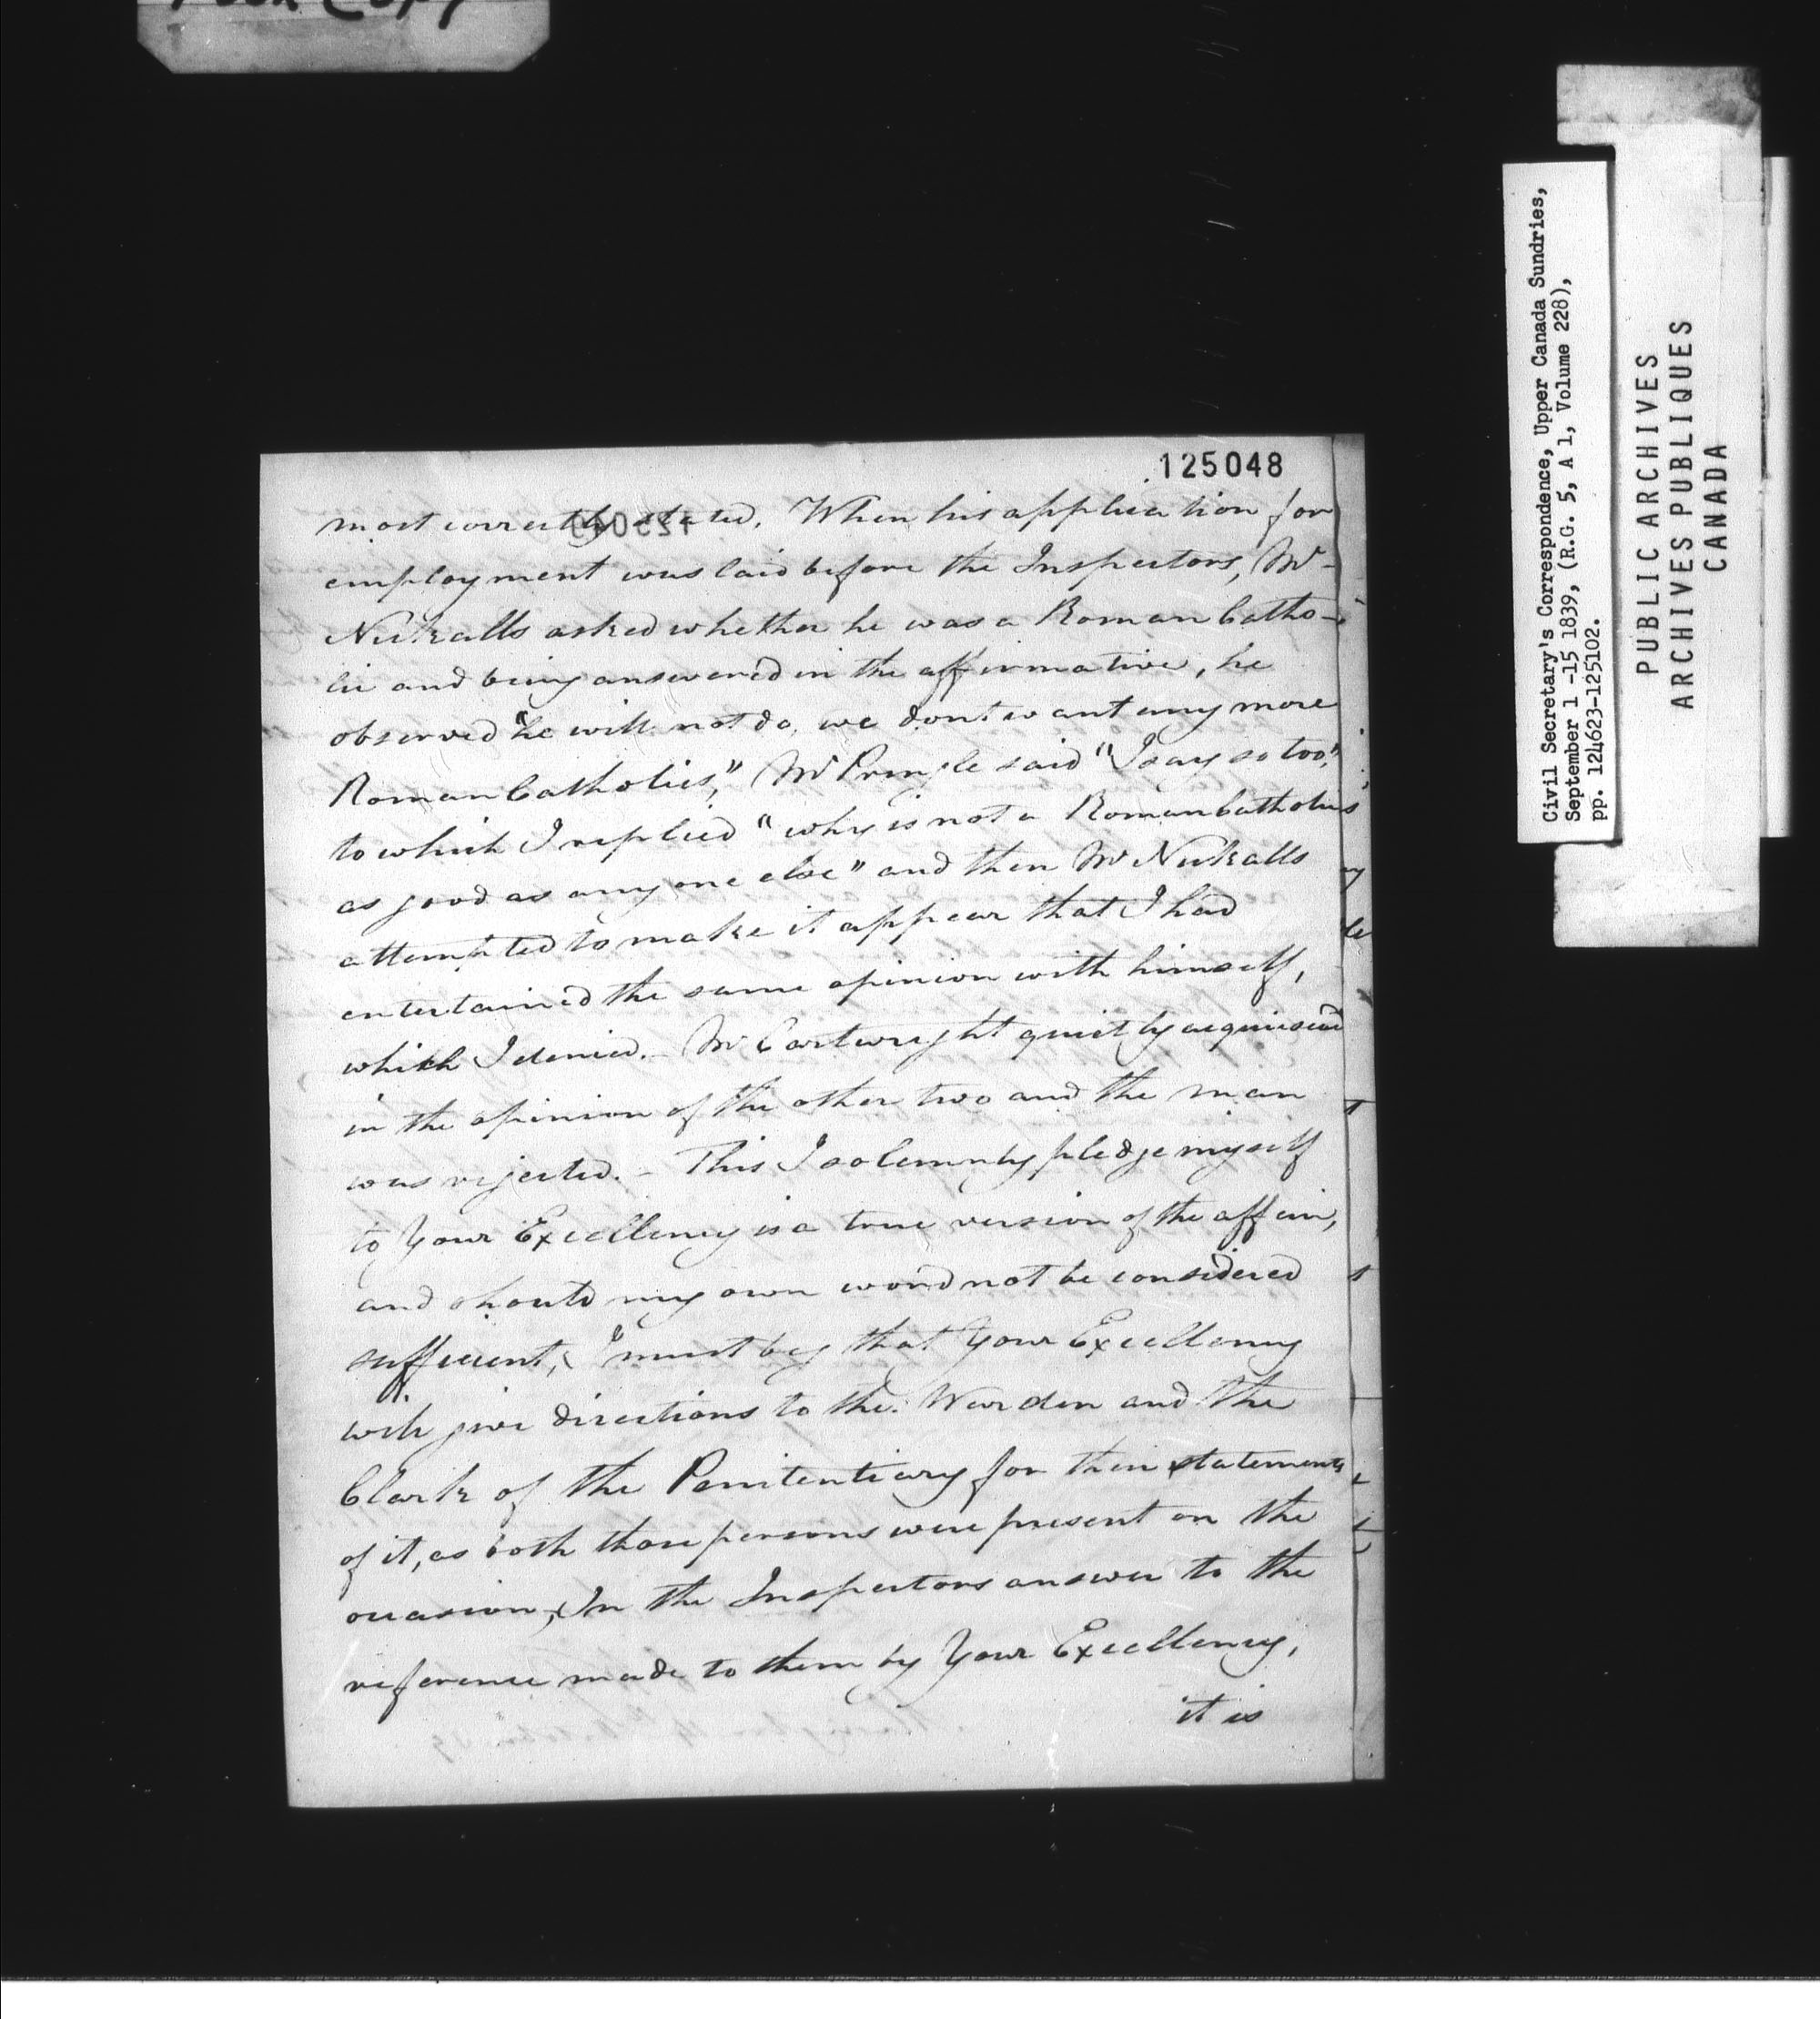 Poor Copy
125048
most correctly stated. When his application for
employment was laid before the Inspectors, Mr
Nickalls asked whether he was a Roman Catho-
lic and being answered in the affirmative, he
observed "he will not do, we dont want any more
Roman Catholics," Mr Pringle said "I say so too,"
to which I replied "why is not a Roman Catholic
as good as any one else" and then Mr Nickalls
attempted to make it appear that I had
entertained the same opinion with himself,
which I denied. - Mr Cartwright quietly acquiesced
in the opinion of the other two and the man
was rejected. - This I solemnly pledge myself
to Your Excellency is a true version of the affair,
and should my own word not be considered
sufficient, I must beg that Your Excellency
will give directions to the Warden and the
Clerk of the Penitentiary for their statements
of it, as both those persons were present on the
occasion, In the Inspectors answer to the
reference made to them by Your Excellency,
it is
Civil Secretary's Correspondence, Upper Canada Sundries,
September 1 -15 1839, (R.G. 5, A 1, Volume 228),
pp. 124623-125102.
PUBLIC ARCHIVES
ARCHIVES PUBLIQUES
CANADA